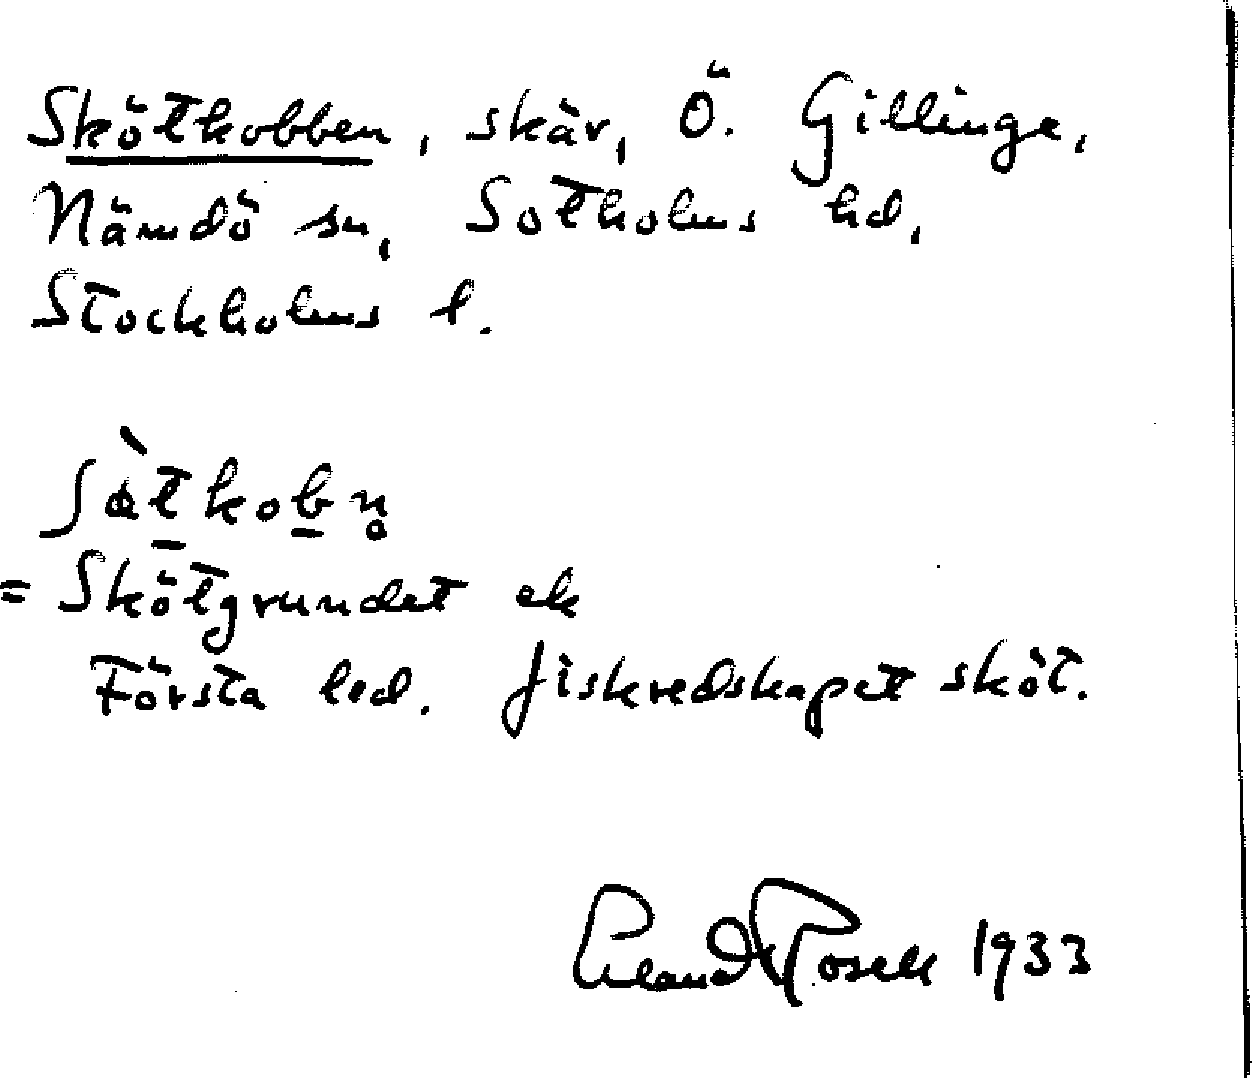 Skötkobben, skär, Ö. Gillinge,
Nämdö sn, Sotholms hd,
Stockholms l.
= Skötgrundet ek
Första led. fiskredskapet sköt.
Erland Rosell 1933